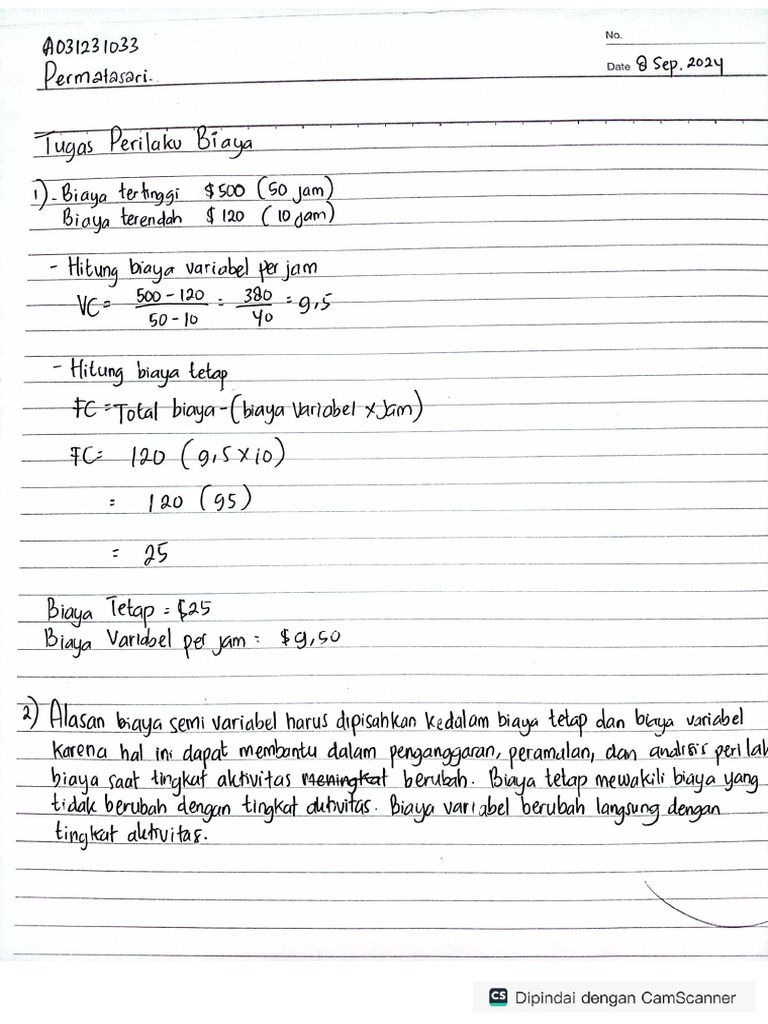 A031231033
Permatasari.
No.
Date 8 Sep. 2024
Tugas Perilaku Biaya
1). Biaya tertinggi $500 (50 jam)
Biaya terendah $120 (10 jam)
- Hitung biaya variabel per jam
VC = 500 - 120 / 50 - 10 = 380 / 40 = 9,5
- Hitung biaya tetap
FC = Total biaya - (biaya variabel x Jam)
FC = 120 (9,5 x 10)
= 120 (95)
= 25
Biaya Tetap = $25
Biaya Variabel per jam = $9,50
2) Alasan biaya semi variabel harus dipisahkan kedalam biaya tetap dan biaya variabel
karena hal ini dapat membantu dalam penganggaran, peramalan, dan analisis perilak
biaya saat tingkat aktivitas meningkat berubah. Biaya tetap mewakili biaya yang
tidak berubah dengan tingkat aktivitas. Biaya variabel berubah langsung dengan
tingkat aktivitas.
CS Dipindai dengan CamScanner